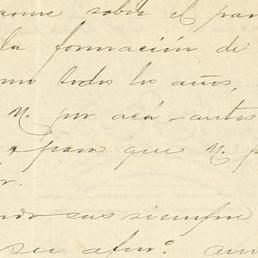 sobre el par
la formación de
mo todos los años,
V. por acá - antes
, para que V. p
r.
siempre
su afmo.